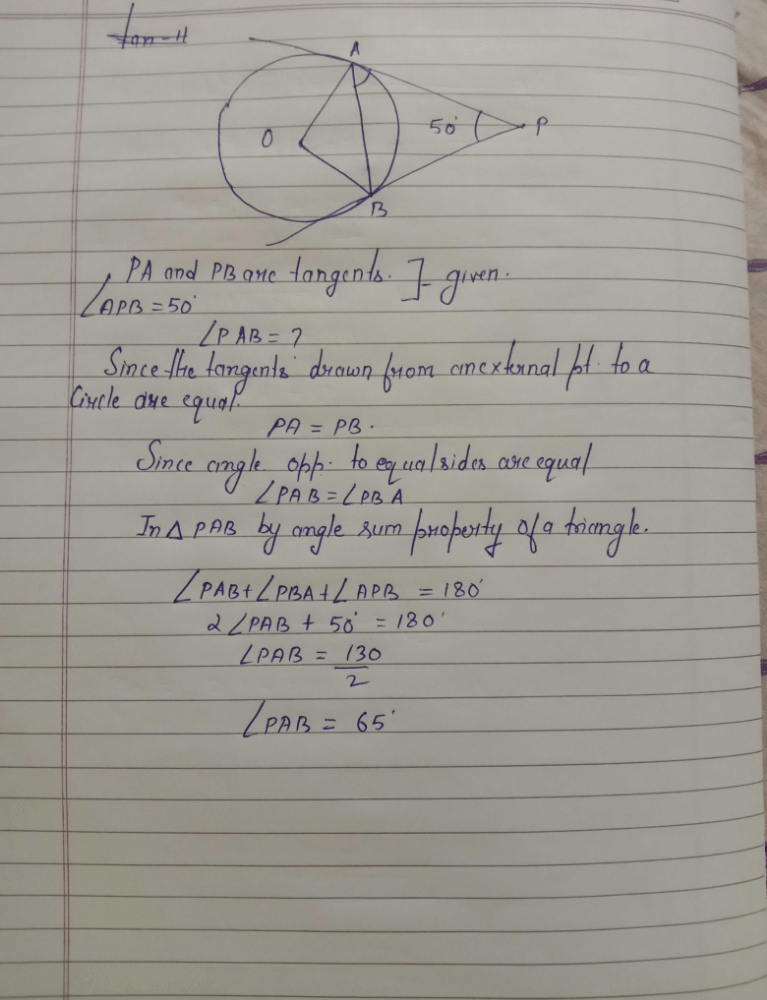 A
O
50°
P
B
PA and PB are tangents. ]- given.
∠APB = 50°
∠PAB = ?
Since the tangents drawn from an external pt. to a
Circle are equal.
PA = PB.
Since angle opp. to equal sides are equal
∠PAB = ∠PBA
In △ PAB by angle sum property of a triangle.
∠PAB + ∠PBA + ∠APB = 180°
2 ∠PAB + 50° = 180°
∠PAB = 130
2
∠PAB = 65°